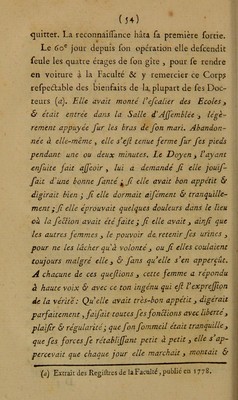 (54)
quitter. La reconnaiſſance hâta ſa première ſortie.
Le 60e jour depuis ſon opération elle deſcendit
ſeule les quatre étages de ſon gîte, pour ſe rendre
en voiture à la Faculté & y remercier ce Corps
reſpectable des bienfaits de la plupart de ſes Doc-
teurs (a). Elle avait monté l'eſcalier des Ecoles,
& était entrée dans la Salle d'Aſſemblée, légè-
rement appuyée ſur les bras de ſon mari. Abandon-
née à elle-même, elle s'eſt tenue ferme ſur ſes pieds
pendant une ou deux minutes. Le Doyen, l'ayant
enſuite fait aſſeoir, lui a demandé ſi elle jouiſ-
ſait d'une bonne ſanté ; ſi elle avait bon appétit &
digérait bien ; ſi elle dormait aiſément & tranquille-
ment ; ſi elle éprouvait quelques douleurs dans le lieu
où la ſection avait été faite ; ſi elle avait, ainſi que
les autres femmes, le pouvoir de retenir ſes urines,
pour ne les lâcher qu'à volonté, ou ſi elles coulaient
toujours malgré elle, & ſans qu'elle s'en apperçût.
A chacune de ces queſtions, cette femme a répondu
à haute voix & avec ce ton ingénu qui eſt l'expreſſion
de la vérité : Qu'elle avait très-bon appétit, digérait
parfaitement, faiſait toutes ſes fonctions avec liberté,
plaiſir & régularité ; que ſon ſommeil était tranquille,
que ſes forces ſe rétabliſſant petit à petit, elle s'ap-
percevait que chaque jour elle marchait, montait &
(a) Extrait des Regiſtres de la Faculté, publié en 1778.